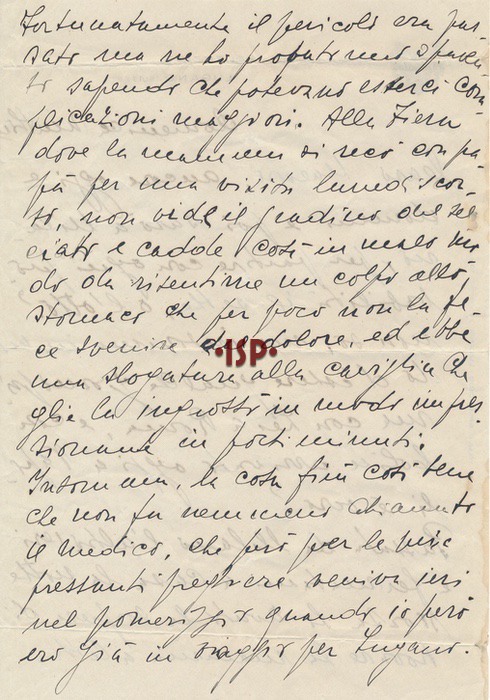 Fortunatamente il pericolo era pas-
sato ma ne ho provato uno spaven-
to sapendo che potevano esserci com-
plicazioni maggiori. Alla Fiera
dove la mamma si recò con pa-
pà per una visita lunedì scor-
so, non vide il gradino del sel-
ciato e cadde così in malo mo-
do da risentirne un colpo allo
stomaco che per poco non la fe-
ce svenire dal dolore, ed ebbe
una slogatura alla caviglia che
glie la ingrossò in modo impres-
sionante in pochi minuti.
Insomma, la cosa finì così bene
che non fu nemmeno chiamato
il medico, che però per le mie
pressanti preghiere veniva ieri
nel pomeriggio quando io però
ero già in viaggio per Lugano.
·ISP·